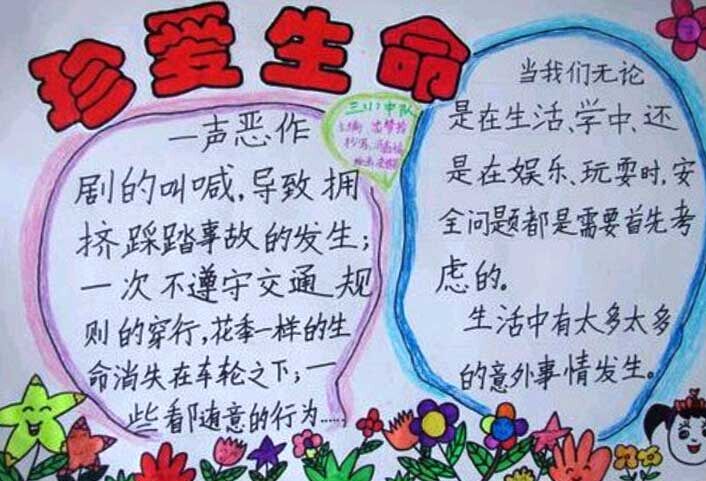 珍爱生命
一声恶作
剧的叫喊,导致拥
挤踩踏事故的发生;
一次不遵守交通规
则的穿行,花季一样的生
命消失在车轮之下;一
些看似随意的行为……
三(1)中队
当我们无论
是在生活、学中、还
是在娱乐、玩耍时,安
全问题都是需要首先考
虑的。
生活中有太多太多
的意外事情发生。